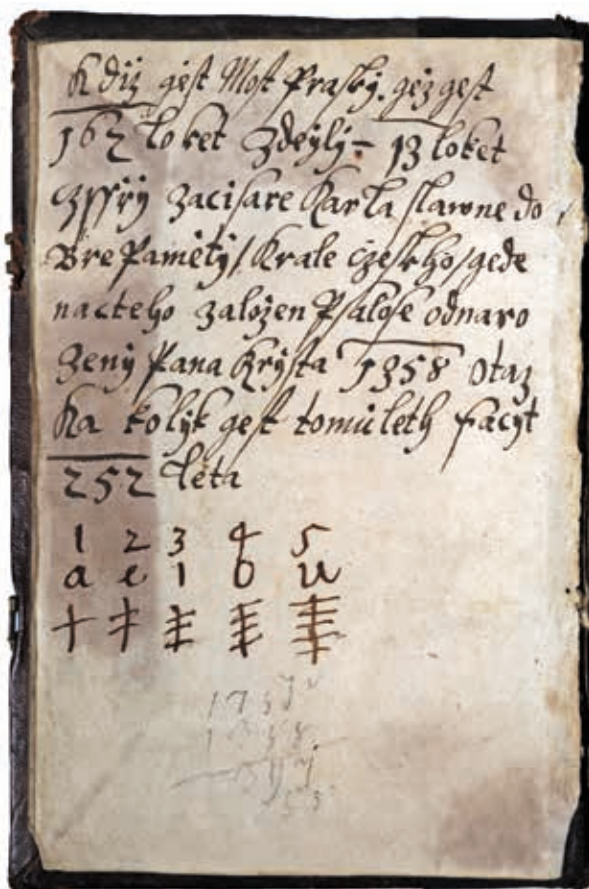 Kdiz gest Most Prasky. gez gest
162 loket zdeyly – 13 loket
zssyry za cisare Karla slawne do
Bre Pamety / krale czeskho / gede
nacteho zalozen Psalose od naro
zeny Pana Krysta 1358 otaz
ka kolyk gest tomu leth facyt
252 leta
1 2 3 4 5
a e i o u